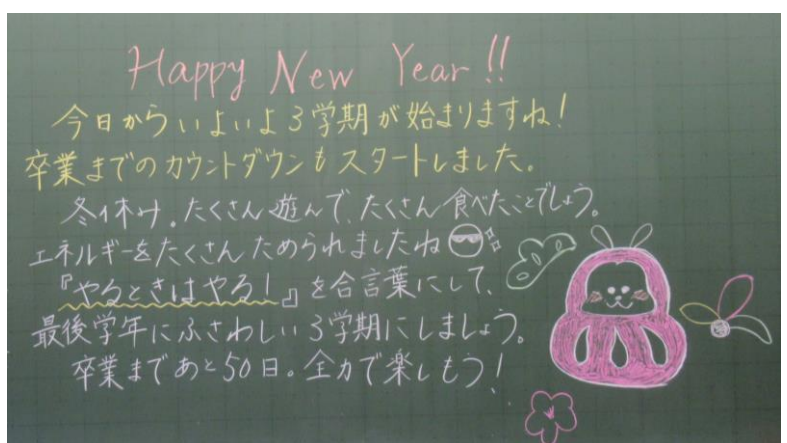 Happy New Year!!
今日からいよいよ3学期が始まりますね!
卒業までのカウントダウンもスタートしました。
冬休み。たくさん遊んで、たくさん食べたことでしょう。
エネルギーをたくさんためられましたね
『やるときはやる!』を合言葉にして、
最後学年にふさわしい3学期にしましょう。
卒業まであと50日。全力で楽しもう!